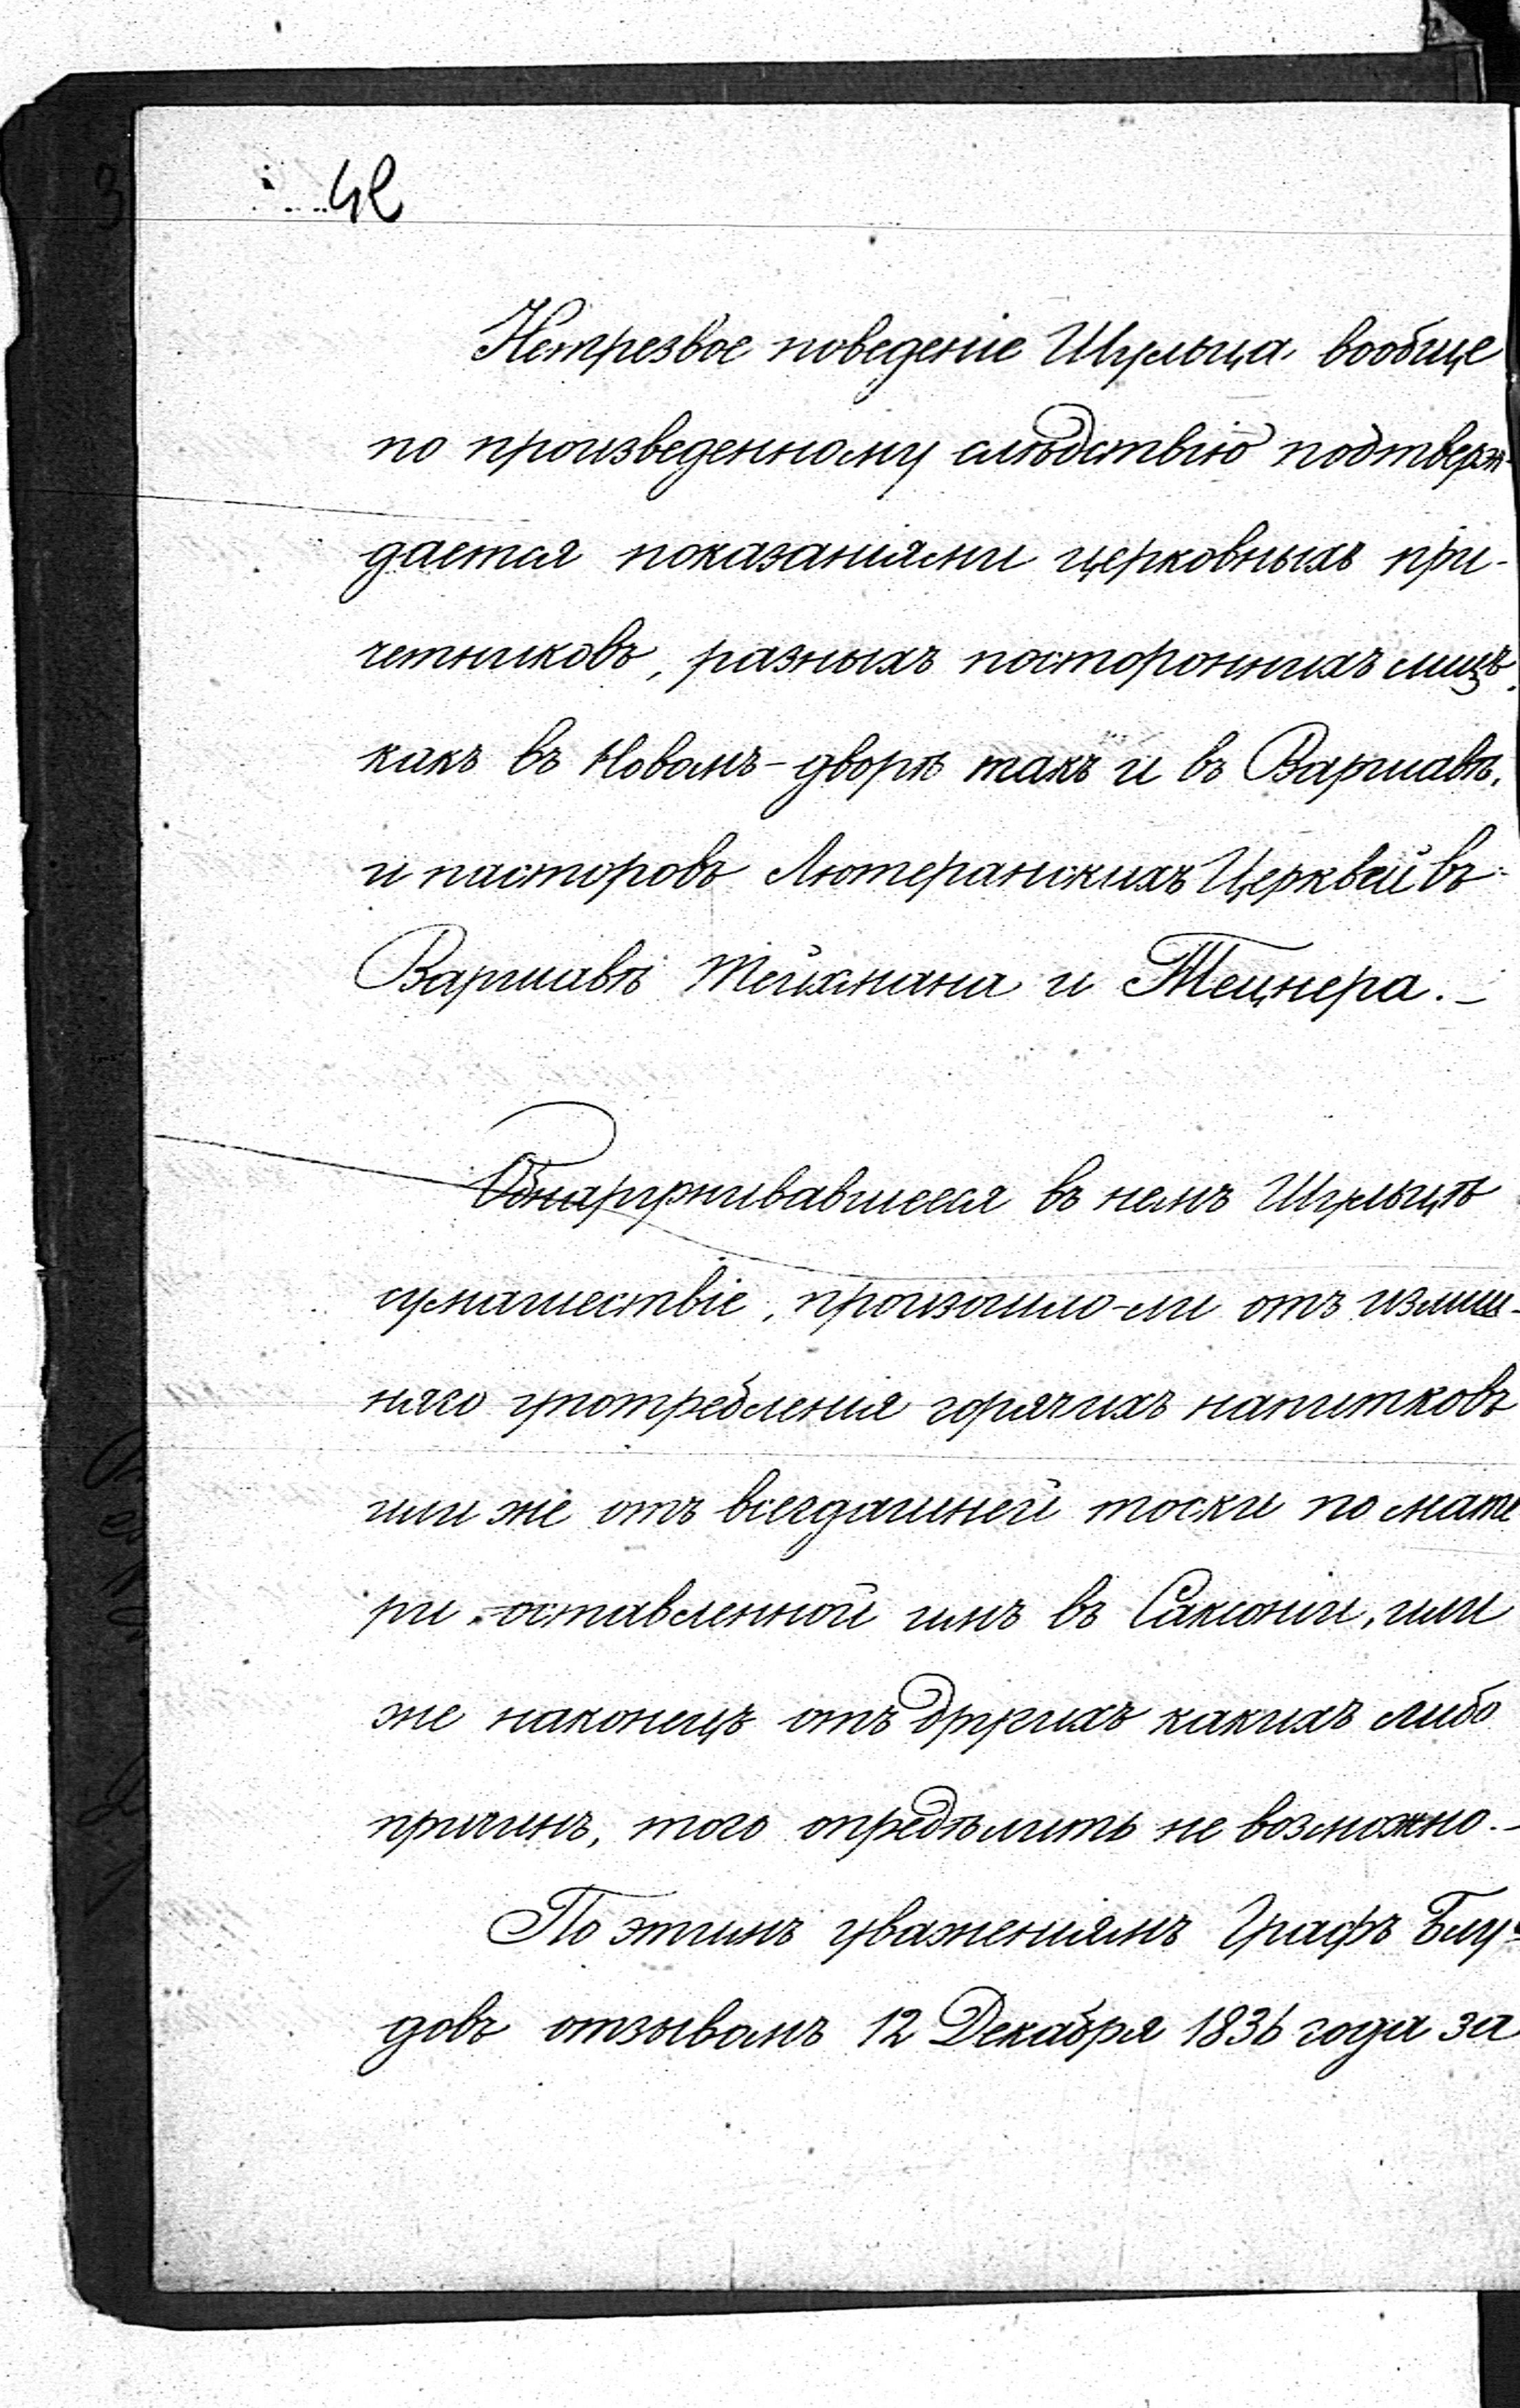 42
Нетрезвое поведеніе Шульца вообще
по произведенному слѣдствію подтверж-
дается показаніями церковныхъ при-
четниковъ, разныхъ постороннихъ лицъ
какъ въ Новомъ-дворѣ такъ и въ Варшавѣ,
и пасторовъ Лютеранскихъ Церквей въ
Варшавѣ Тейхмана и Тецнера.-
Обнаруживавшееся въ немъ Шульцѣ
сумашествіе, произошло-ли отъ излиш-
няго употребленія горячихъ напитковъ
или же отъ всегдашней тоски по мате
ри оставленной имъ въ Саксоніи, или
же наконецъ отъ другихъ какихъ либо
причинъ, того опредѣлить не возможно.-
По этимъ уваженіямъ Графъ Блу-
довъ отзывомъ 12 Декабря 1836 года за